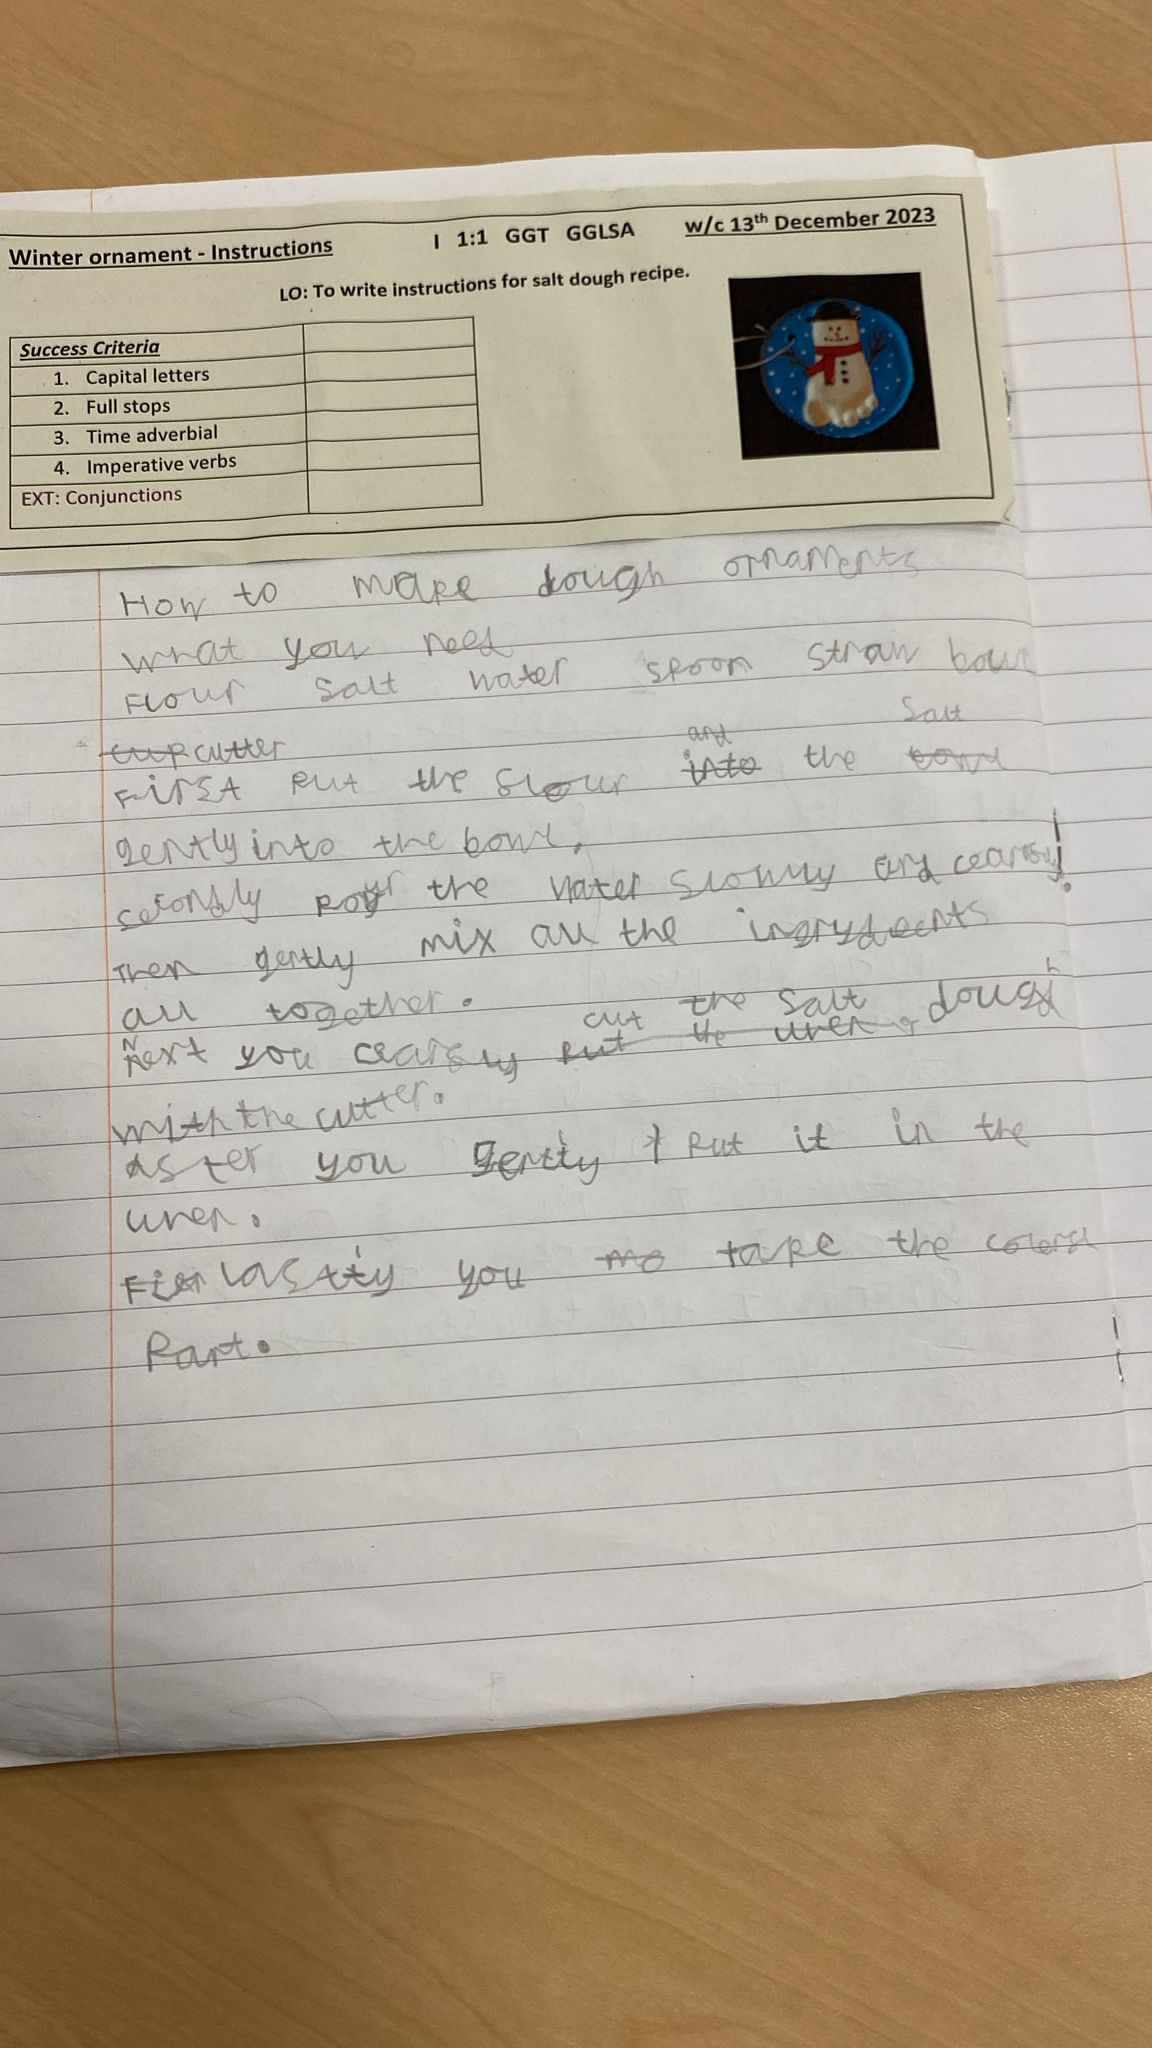 Winter ornament - Instructions I 1:1 GGT GGLSA w/c 13th December 2023
LO: To write instructions for salt dough recipe.
Success Criteria
1. Capital letters
2. Full stops
3. Time adverbial
4. Imperative verbs
EXT: Conjunctions
How to make dough ornaments
what you need
Flour salt water spoon straw bowl
cup cutter
and salt
First put the flour into the bowl
gently into the bowl.
secondly pour the water slowly and cearfuy!
Then gently mix all the ingrydeents
all together.
cut the salt dough
Next you cearfuly put the uven.
with the cutter.
after you gently put it in the
uven.
lastly you mo take the
Part.